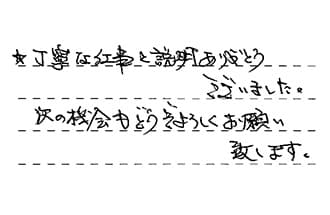 ★丁寧な仕事と説明ありがとう
ございました。
次の機会もどうぞよろしくお願い
致します。